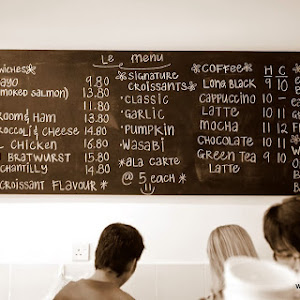 Le menu
WICHES*
AYO 9.80
MOKED SALMON) 13.80
11.80
ROOM & HAM 13.80
ROCCOLI & CHEESE 14.80
L CHICKEN 16.80
BRATWURST 15.80
CHANTILLY 14.80
CROISSANT FLAVOUR *
*SIGNATURE
CROISSANTS*
·CLASSIC
·GARLIC
·PUMPKIN
·WASABI
*ALA CARTE
@ 5 EACH*
*COFFEE* H C
LONG BLACK 9 10
CAPPUCCINO 10
LATTE 10 11
MOCHA 11 12
CHOCOLATE 10 11
GREEN TEA 9 10
LATTE